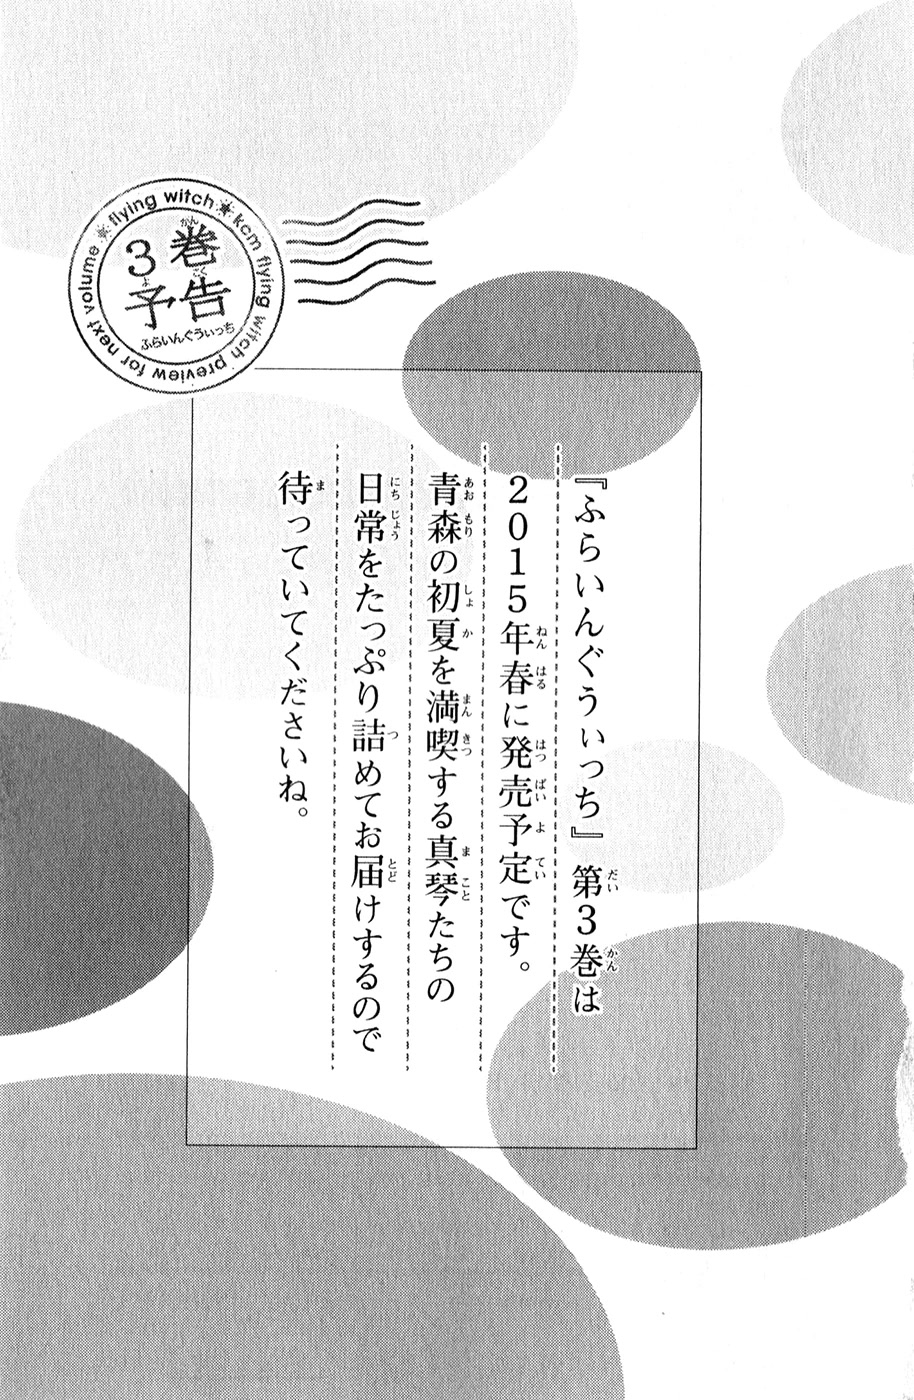 flying witch＊kcm flying witch preview for next volume＊
3巻
予告
ふらいんぐうぃっち
『ふらいんぐうぃっち』第3巻は
2015年春に発売予定です。
青森の初夏を満喫する真琴たちの
日常をたっぷり詰めてお届けするので
待っていてくださいね。